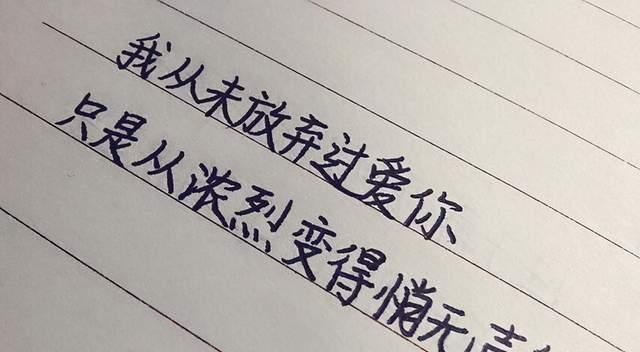 我从未放弃过爱你
只是从浓烈变得悄无声